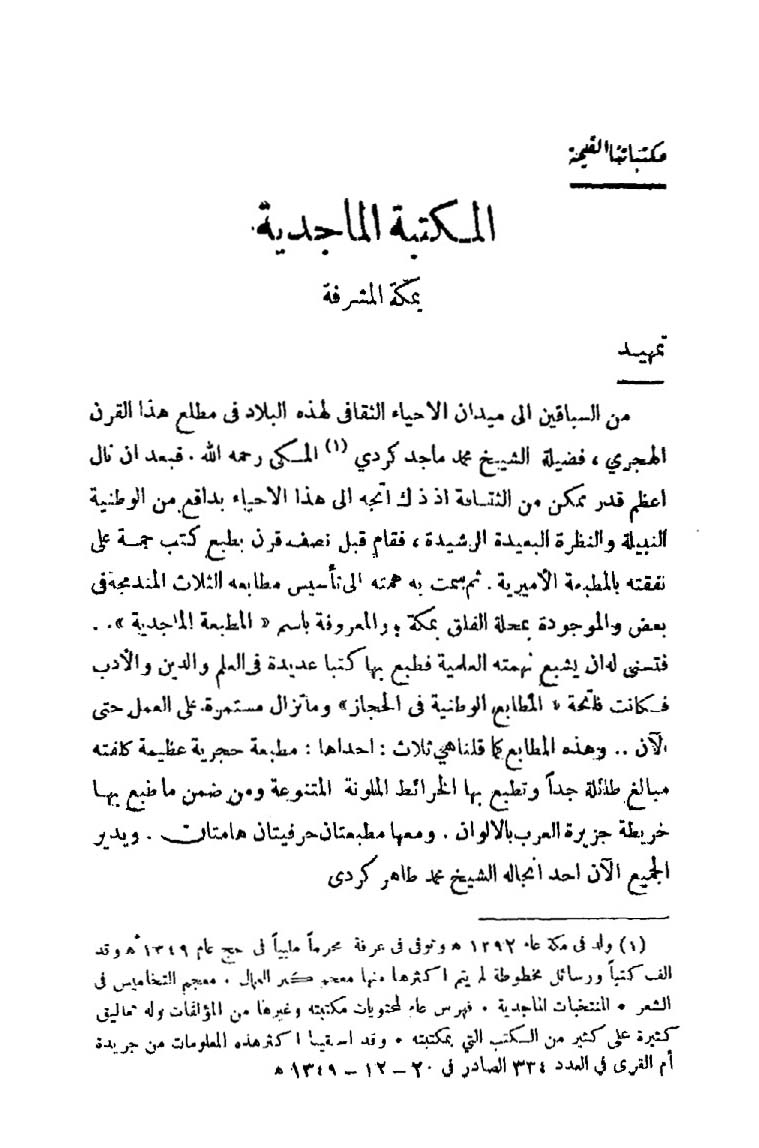 مكتباتنا القيمة
المكتبة الماجدية
بمكة المشرفة
تمهيد
من السباقين الى ميدان الاحياء الثقافى لهذه البلاد فى مطلع هذا القرن
الهجري ، فضيلة الشيخ محمد ماجد كردي (١) المكى رحمه الله . فبعد ان نال
اعظم قدر ممكن من الثقافة اذ ذك اتجه الى هذا الاحياء بدافع من الوطنية
النبيلة والنظرة البعيدة الرشيدة ، فقام قبل نصف قرن بطبع كتب جمـة على
نفقته بالمطبعة الأميرية . ثم سمت به همته الى تأسيس مطابعه الثلاث المندمجة فى
بعض والموجودة بمحلة الفلق بمكة والمعروفة باسم « المطبعة الماجدية » . .
فتسنى له ان يشبع نهمته العلمية فطبع بها كتبا عديدة فى العلم والدين والأدب
فكانت فاتحة « المطابع الوطنية فى الحجاز » وماتزال مستمرة على العمل حتى
الآن .. وهذه المطابع كما قلنا هي ثلاث : احداها : مطبعة حجرية عظيمة كلفته
مبالغ طائلة جداً وتطبع بها الخرائط الملونة المتنوعة ومن ضمن ما طبع بهـا
خريطة جزيرة العرب بالالوان . ومعها مطبعتان حرفيتان هامتان . ويدير
الجميع الآن احد انجاله الشيخ محمد طاهر كردى
(١) ولد فى مكة عام ١٢٩٢ ه وتوفى فى عرفة محرماً ملبياً فى حج عام ١٣٤٩ ه وقد
الف كتباً ورسائل مخطوطة لم يتم اكثرها منها معجم كنز العمال . معجم التخاميس فى
الشعر . المنتخبات الماجدية . فهرس عام لمحتويات مكتبته وغيرها من المؤلفات وله تعاليق
كثيرة على كثير من الكتب التي بمكتبته . وقد استقينا اكثر هذه المعلومات من جريدة
أم القرى في العدد ٣٣٤ الصادر في ٢٠ – ١٢ – ١٣٤٩ ه